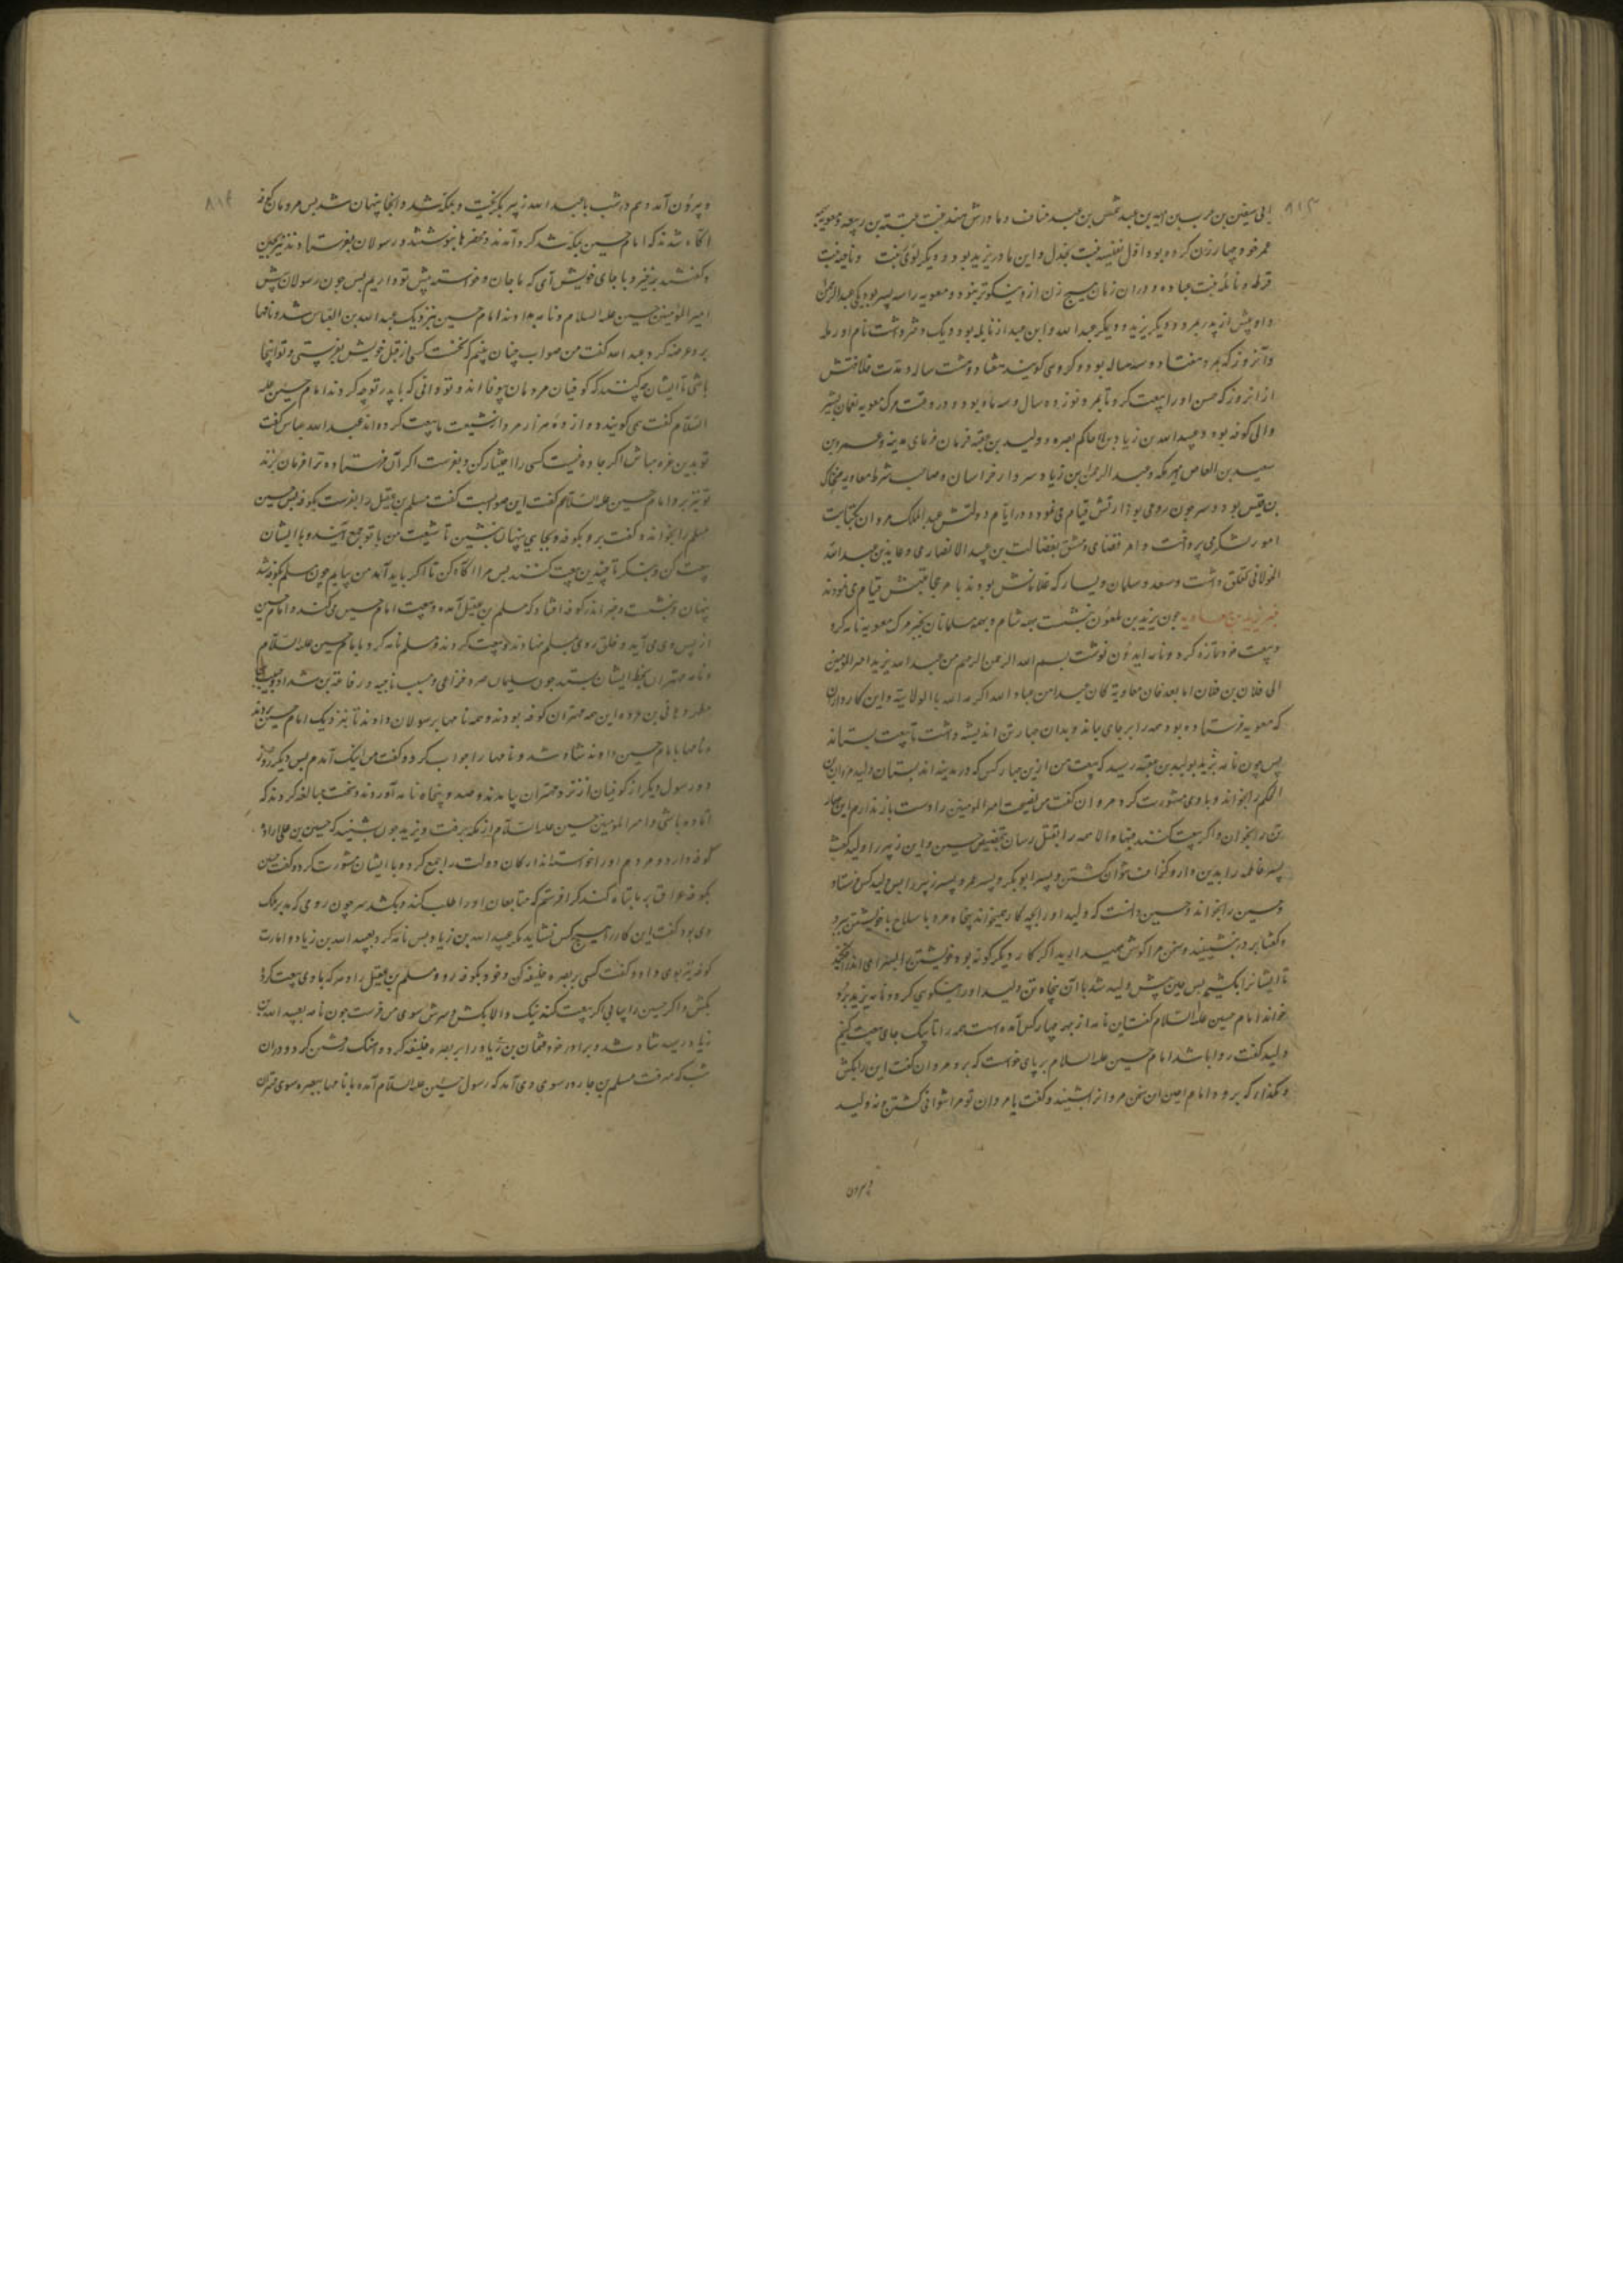 ۸۱۳
ابی سفین بن حرب بن امیه بن عبد شمس بن عبد مناف و مادرش هند بنت عتبة بن ربیعه و معویه
عمر خود چهار زن کرده بود اول نفیسه بنت بجدل و این مادر یزید بود و دیگر بنت و ناخته بنت
قرظه و نائله بنت عماره و در ان زمان هیچ زن ازو نیکوتر نبود و معویه را سه پسر بود یکی عبدالرحمن
و او پیش از پدر بمرد و دیگر یزید و دیگر عبد الله و این عبد از نایله بود و یک دختر داشت نام او رمله
و آنروز که بمرد هفتاد و سه ساله بود و کروهی کویند هفتاد و هشت ساله و مدت خلافتش
از انروز که حسن او را بیعت کرد تا بمرد نوزده سال و سه ماه بود و در وقت مرک معویه نعمان بشیر
والی کوفه بود و عبید الله بن زیاد حاکم بصره و ولید بن عتبه فرمان فرمای مدینه و عمرو بن
سعید بن العاص میر مکه و عبد الرحمن بن زیاد سردار خراسان و صاحب شرط معاویه ضحاک
بن قیس بود و سرجون رومی بوزارتش قیام می نمود و در ایام دولتش عبد الملک مروان بکتابت
امور لشکر می پرداخت و امر قضای دمشق بفضالت بن عبید الانصاری و عایذ بن عبد الله
الخولانی تعلق داشت و سعد و سلمان و یسار که غلامانش بودند بامر حجابتش قیام می نمودند
خبر یزید بن معاویه چون یزید بن ملعون بنشست بهمه شام و بهمه مسلمانان بخبر مرک معویه نامه کرد
و بیعت خود تازه کرد و نامه ایدون نوشت بسم الله الرحمن الرحیم من عبد الله یزید امیر المومنین
الی فلان بن فلان اما بعد فان معاویة کان عبدا من عباد الله اکرمه الله باالولایة و این کارداران
که معویه فرستاده بود همه را بر جای بماند و بدان چهار تن اندیشه داشت تا بیعت بستاند
پس چون نامه یزید بولید بن عتبه رسید که بیعت من ازین چهار کس که در مدینه اند بستان ولید مروان بن
الحکم را بخواند و با وی مشورت کرد مروان کفت من نصیحت امیر المومنین را دست باز ندارم این چهار
تن را بخوان و اکر بیعت کنند فبها و الا همه را بقتل رسان بتخصیص حسین و ابن زبیر را ولید کفت
پسر فاطمه را بدین دارو کذافت نتوان کشتن و پسر ابوبکر و پسر عمر و پسر زبیر را پس ولید کس فرستاد
و حسین را بخواند و حسین دانست که ولید او را بچه کار میخواند پنجاه مرد با سلاح با خویشتن ببرد
و کفتا بر در بنشینید و سخن مرا کوش میدارید اکر کار دیکر کونه بود
تا ایشانرا بکشیم پس حسین پیش ولید شد با آن پنجاه تن ولید او را نیکویی کرد و نامه یزید برو
خواند امام حسین علیه السلام کفت ان نامه از بهر چهار کس آمده است همه را تا بیک جای بیعت کنیم
ولید کفت روا باشد امام حسین علیه السلام بر پای خواست که برود مروان کفت این را بکش
و مکذار که برود امام حسین ان سخن مروان بشنید و کفت یا مروان تو مرا نتوانی کشتن و نه ولید
و بیرون
۸۱۴
و بیرون آمد و هم در شب با عبد الله زبیر بکریخت و بمکه شد و انجا پنهان شد پس مردمان کوفه
آکاه شدند که امام حسین بمکه شد کرد آمدند و محضرها بنوشتند و رسولان بفرستادند نزدیک حسین
و کفتند برخیز و با جای خویش آی که ما جان و خواسته پیش تو داریم پس چون رسولان پیش
امیر المؤمنین حسین علیه السلام و نامه بدادند امام حسین نزدیک عبد الله بن العباس شد و نامها
برو عرضه کرد عبد الله کفت من صواب چنان بینم که نخست کسی از قبل خویش بفرستی و تو اینجا
باشی تا ایشان چه کنند که کوفیان مردمان بیوفا اند و تو دانی که با پدر تو چه کردند امام حسین علیه
السلام کفت می کویند دوازده هزار مرد از شیعت ما بیعت کرده اند عبد الله عباس کفت
تو بدین غره مباش اکر چاره نیست کسی را اختیار کن و بفرست اکر آن فرستاده ترا فرمان برند
تو نیز برو امام حسین علیه السلام کفت این صوابست کفت مسلم بن عقیل را بفرست بکوفه پس حسین
مسلم را بخواند و کفت برو بکوفه و بجایی پنهان بنشین تا شیعت من با تو جمع آیند و با ایشان
بیعت کن و بنکر تا چندین بیعت کنند پس مرا آکاه کن تا اکر باید آمد من بیایم چون مسلم بکوفه شد
پنهان بنشست و خبر اندر کوفه افتاد که مسلم بن عقیل آمده و بیعت امام حسین می کند و امام حسین
از پس وی می آید و خلق روی بمسلم نهادند و بیعت کردند و مسلم نامه کرد با امام حسین علیه السلام
و نامه مهتران بخط ایشان بستد چون سلیمان صرد خزاعی و مسیب ناجیه و رفاعة بن شداد و حبیب
مظهر و هانی بن عروه این همه مهتران کوفه بودند و همه نامها برسولان دادند تا بنزدیک امام حسین بردند
و نامها با امام حسین دادند شاد شد و نامها را جواب کرد و کفت من اینک آمدم پس دیکر روز
دو رسول دیکر از کوفیان از نزد مهتران بیامدند و صد و پنجاه نامه آوردند و سخت مبالغه کردند که
آماده باشی و امیر المومنین حسین علیه السلام از مکه برفت و یزید چون بشنید که حسین بن علی اراده
کوفه دارد و مردم او را خواستند ارکان دولت را جمع کرد و با ایشان مشورت کرد و کفت حسین
بکوفه عراق بر ما تباه کند کرا فرستم که متابعان او را طلب کند و بکشد سرجون رومی که مدبر ملک
وی بود کفت این کار را هیچ کس نشاید مکر عبید الله بن زیاد پس نامه کرد بعبید الله بن زیاد و امارت
کوفه نیز بوی داد و کفت کسی ببصره خلیفه کن و خود بکوفه رو و مسلم بن عقیل را و هر که با وی بیعت کرد
بکش و اکر حسین را بیابی اکر بیعت کند نیک و الا بکش و سرش سوی من فرست چون نامه بعبید الله بن
زیاد رسید شاد شد و برادر خود عثمان بن زیاد را بر بصره خلیفه کرد و آهنک رفتن کرد و در ان
شب که میرفت مسلم بن جارود سوی وی آمد که رسول حسین علیه السلام آمده با نامها ببصره سوی مهتران